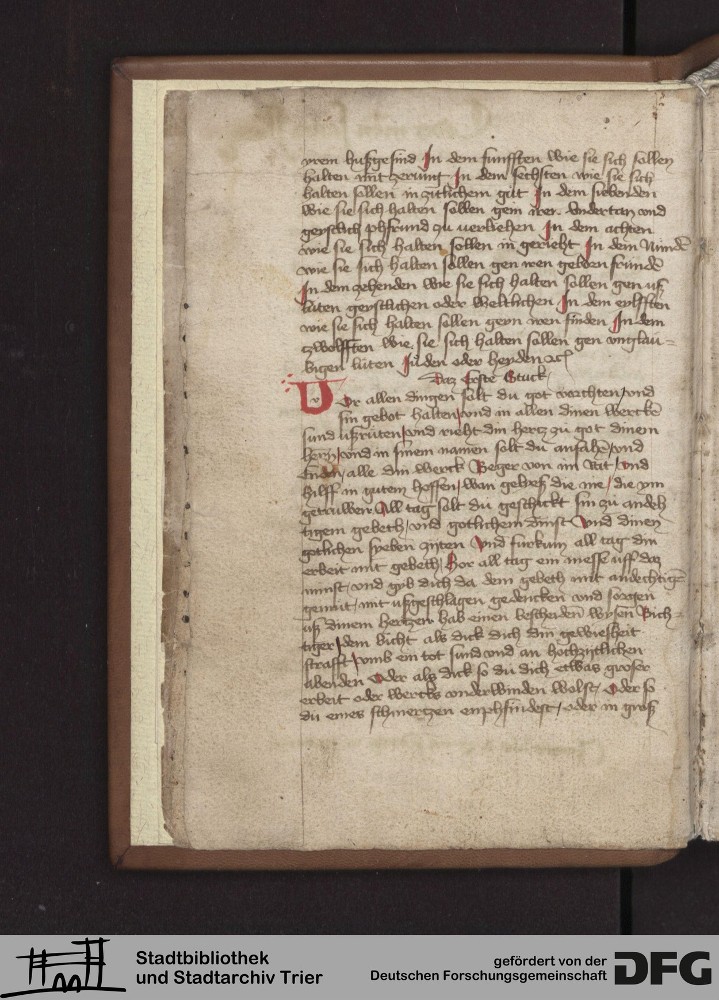 irem hußgesind In dem funfften wie sie sich sollen
halten mit zerung In dem sechsten wie sie sich
halten sollen in zitlichem gut In dem siebenden
wie sie sich halten sollen gein irer vndertan vnd
geystlich phfrund zu uerliehen In dem achten
wie sie sich halten sollen in gericht In dem Nunde
wie sie sich halten sollen gen iren geborn frunde
In dem zehenden wie sie sich halten sollen gen uß
luten geystlichen oder weltlichen In dem eylfften
wie sie sich halten sollen geyn iren finden In dem
zwolfften wie sie sich halten sollen gen vnglau-
bigen luten Juden oder heyden
Daz Erste Stuck
Vor allen dingen salt du got vorchten / vnd
sin gebot halten / vnd in allen dinen wercke
sund ußruten / vnd richt din hertz zu got dinem
hern / vnd in sinem namen salt du anfahe / vnd
Enden / alle din werck Beger von im Rat / vnd
hilff in gutem hoffen / wan gebrest die nie / die ym
getruwen All tag salt du geschickt sin zu andech
tigem gebeth / vnd gotlichem dinst Vnd dinen
gotlichen syeben zyten Vnd furkum all tag din
erbeit mit gebeth / Hor all tag ein messe uff daz
minst / vnd gyb dich da dem gebeth mit andechtige
gemut / mit ußgeschlagen gedencken vnd sorgen
uß dinem hertzen hab einen bescheiden wysen Bich-
tiger / dem bicht als dick dich din gewießheit
strafft / vmb ein tot sund vnd an hochzytlichen
abenden Oder als dick so du dich etwas groser
erbeit oder wercks vnderwinden wolst / Oder so
du eines schmertzen enphfindest / oder in groß
Stadtbibliothek
und Stadtarchiv Trier
gefördert von der
Deutschen Forschungsgemeinschaft
DFG